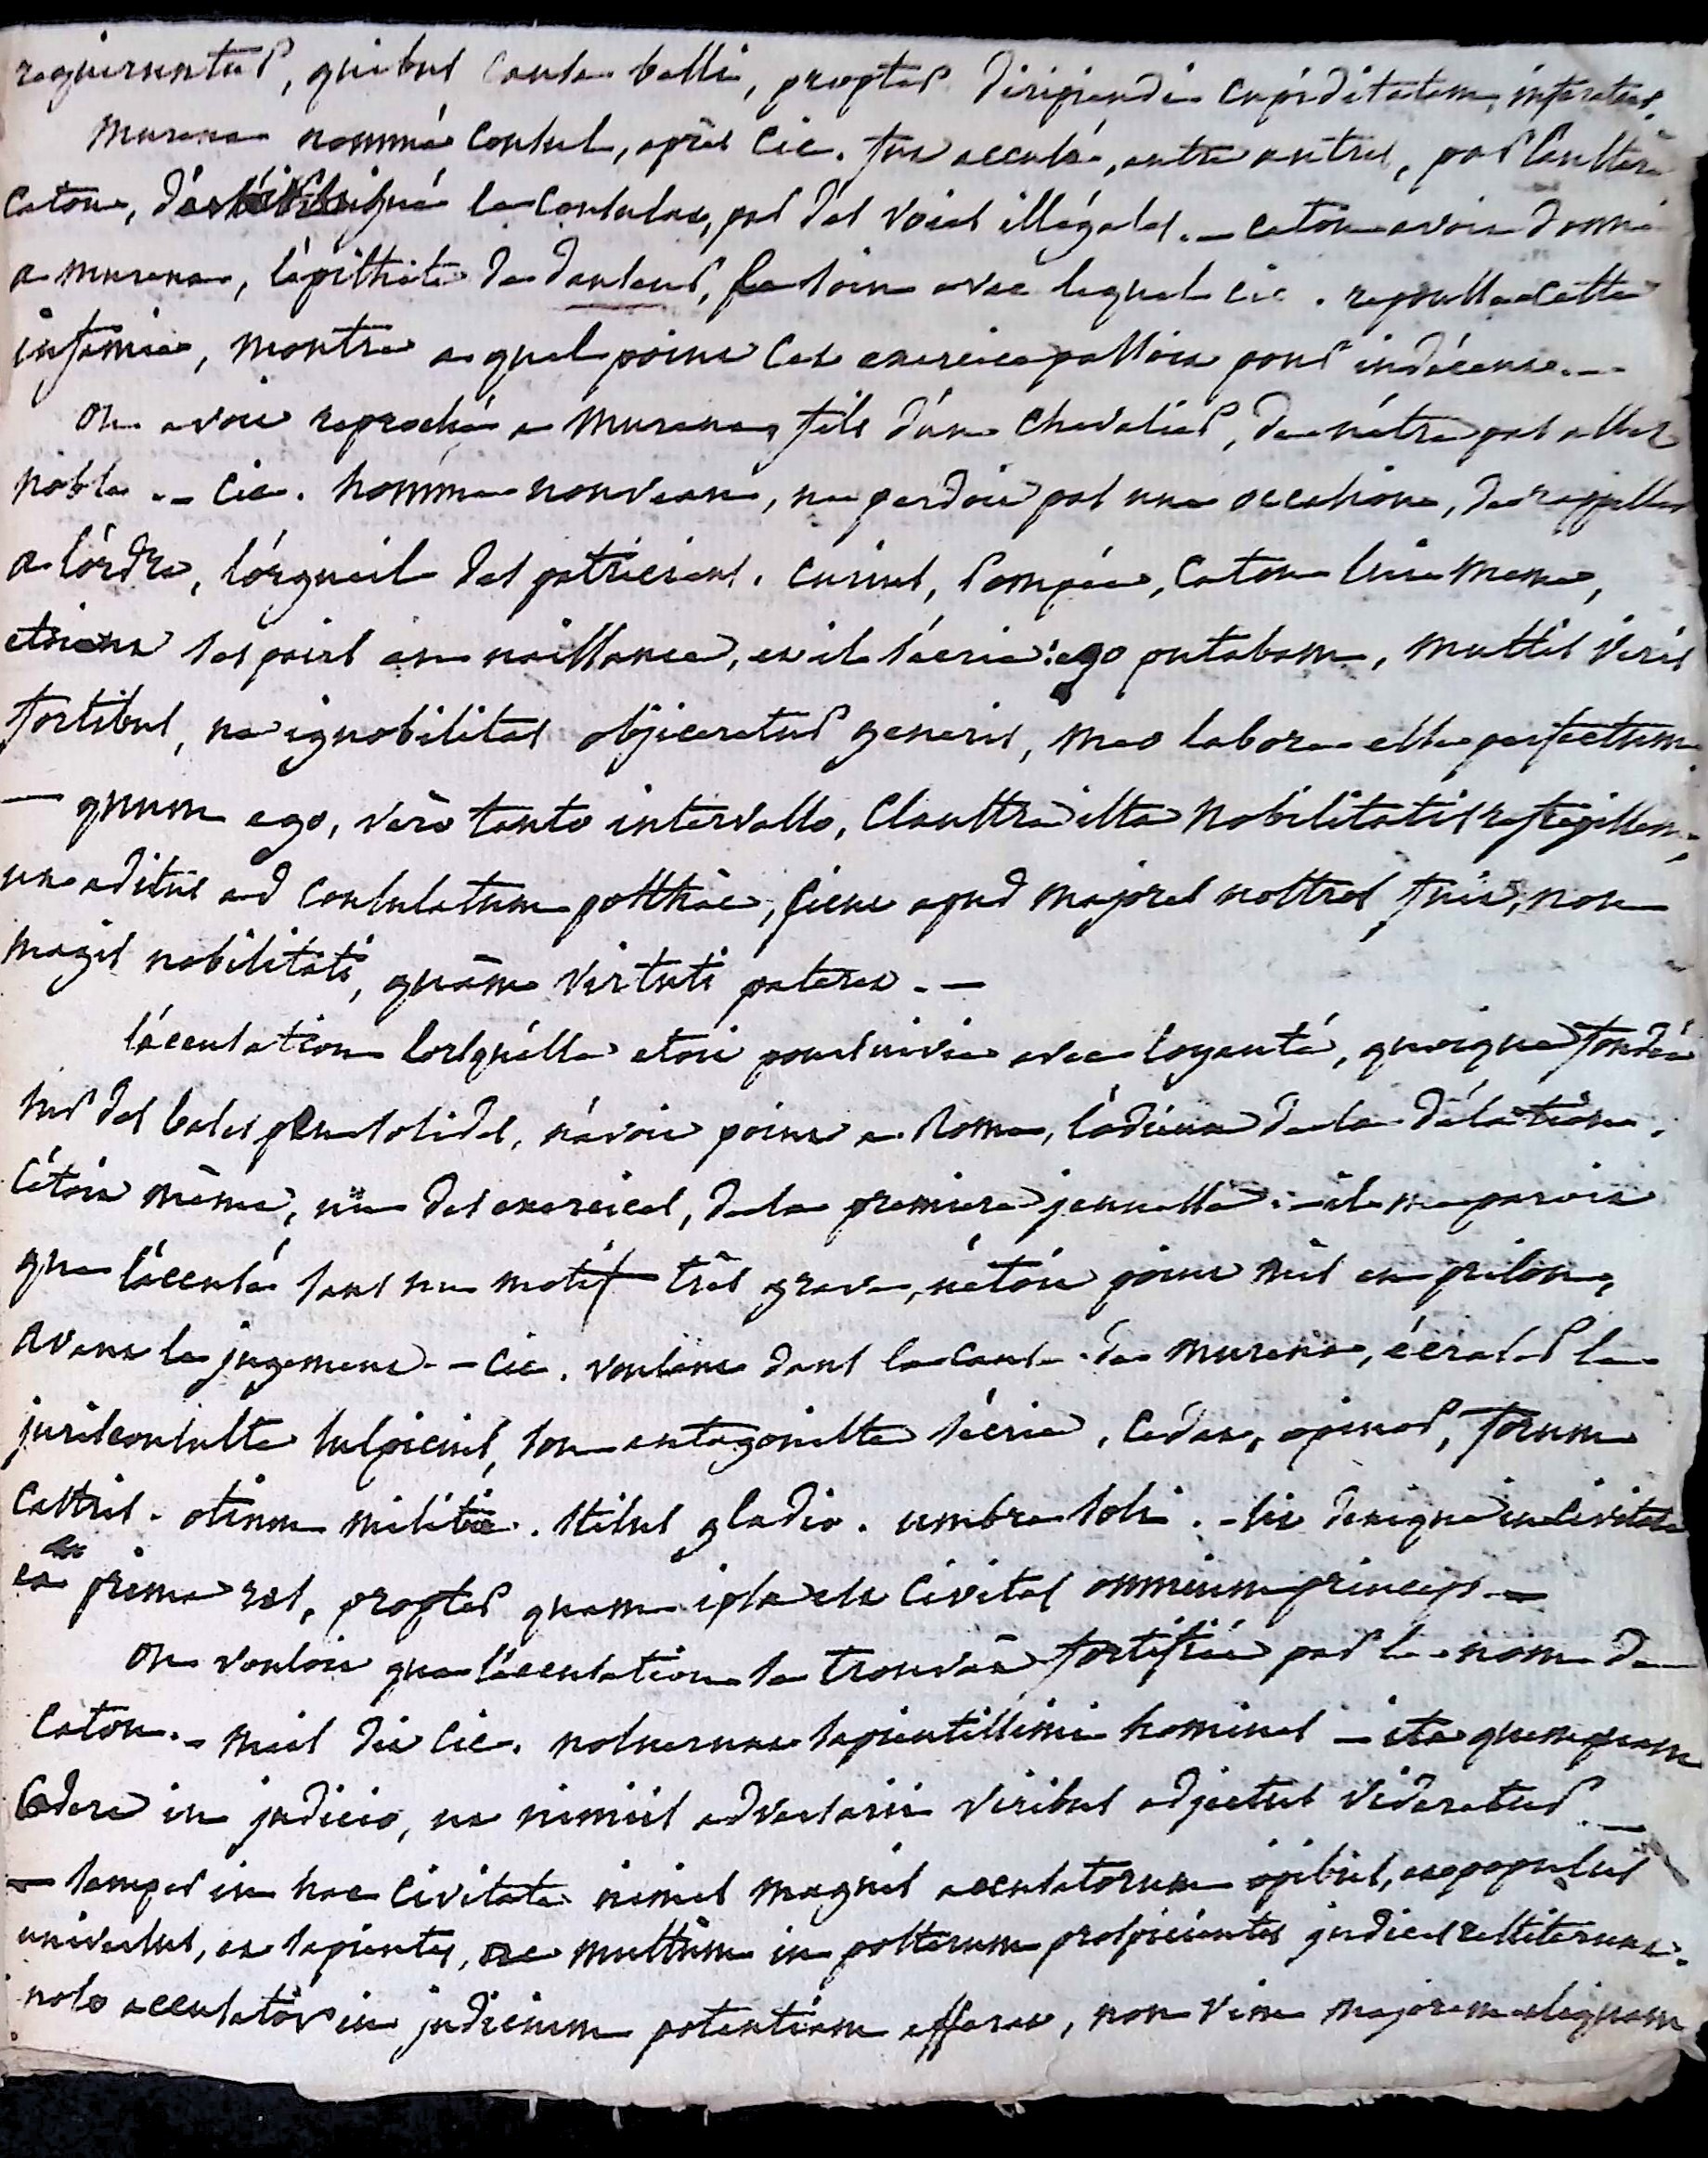 requiruntur, quibus causa belli, propter diripiendi cupiditatem, inferatur.
Murena nommé consul, après Cic. fut accusé, entre autres, par l'austère
Caton, d'avoir brigué le consulat, par des voies illégales. — Caton avoit donné
a Murena, l'épithète de danseur, le soin avec lequel Cic. repousse cette
infamie, montre a quel point cet exercice passoit pour indécent. —
On avoit reproché a Murena, fils d'un chevalier, de n'être pas assez
noble. — Cic. homme nouveau, ne perdoit pas une occasion, de rappeller
a l'ordre, l'orgueil des patriciens. Curius, Pompée, Caton lui meme,
etoient ses pairs en naissance, et il s'écrie : ego putabam, multis viris
fortibus, ne ignobilitas objiceretur generis, meo labore esse perfectum.
— quum ego, vero tanto intervallo, claustra ista nobilitatis refregissem,
ut aditus ad consulatum posthàc, sicut apud majores nostros fuit, non
magis nobilitati, quàm virtuti pateret. —
l'accusation lorsqu'elle etoit poursuivie avec loyauté, quoique fondée
sur des bases peu solides, n'avoit point a Rome, l'odieux de la délation.
C'étoit même, un des exercices, de la premiere jeunesse. — il me paroit
que l'accusé sans un motif très grave, n'étoit point mis en prison,
avant le jugement. — Cic. voulant dans la cause de Murena, écraser le
jurisconsulte Sulpicius, son antagoniste s'écrie, cedat, opinor, forum
castris. otium militiæ. stilus gladio. umbra soli. — sit denique in civitate
ea prima res, propter quam ipsa est civitas omnium princeps. —
On vouloit que l'accusation se trouvât fortifiée par le nom de
Caton. — mais dit Cic. noluerunt sapientissimi homines — ita quemquam
cadere in judicio, ut nimiis adversarii viribus abjectus videretur. —
— semper in hac civitate nimis magnis accusatorum opibus, et populus
universus, et sapientes, ac multùm in posterum prospicientes judices restiterunt.
nolo accusator in judicium potentiam afferat, non vim majorem aliquam